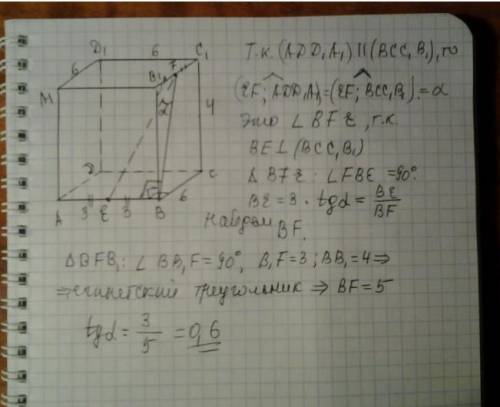 D₁ 6 C₁
6 B₁ F
M α 4
D C
A 3 E 3 B 6
Т.к. (ADD₁A₁) || (BCC₁B₁), то
(EF; ADD₁A₁) = (EF; BCC₁B₁) = α
Это ∠BFE, т.к.
BE ⊥ (BCC₁B₁)
Δ BFE: ∠FBE = 90°.
BE = 3. tgα = BE/BF
Найдем BF.
ΔBFB₁: ∠BB₁F = 90°, B₁F = 3; BB₁ = 4 ⇒
⇒ египетский треугольник ⇒ BF = 5
tgα = 3/5 = 0,6